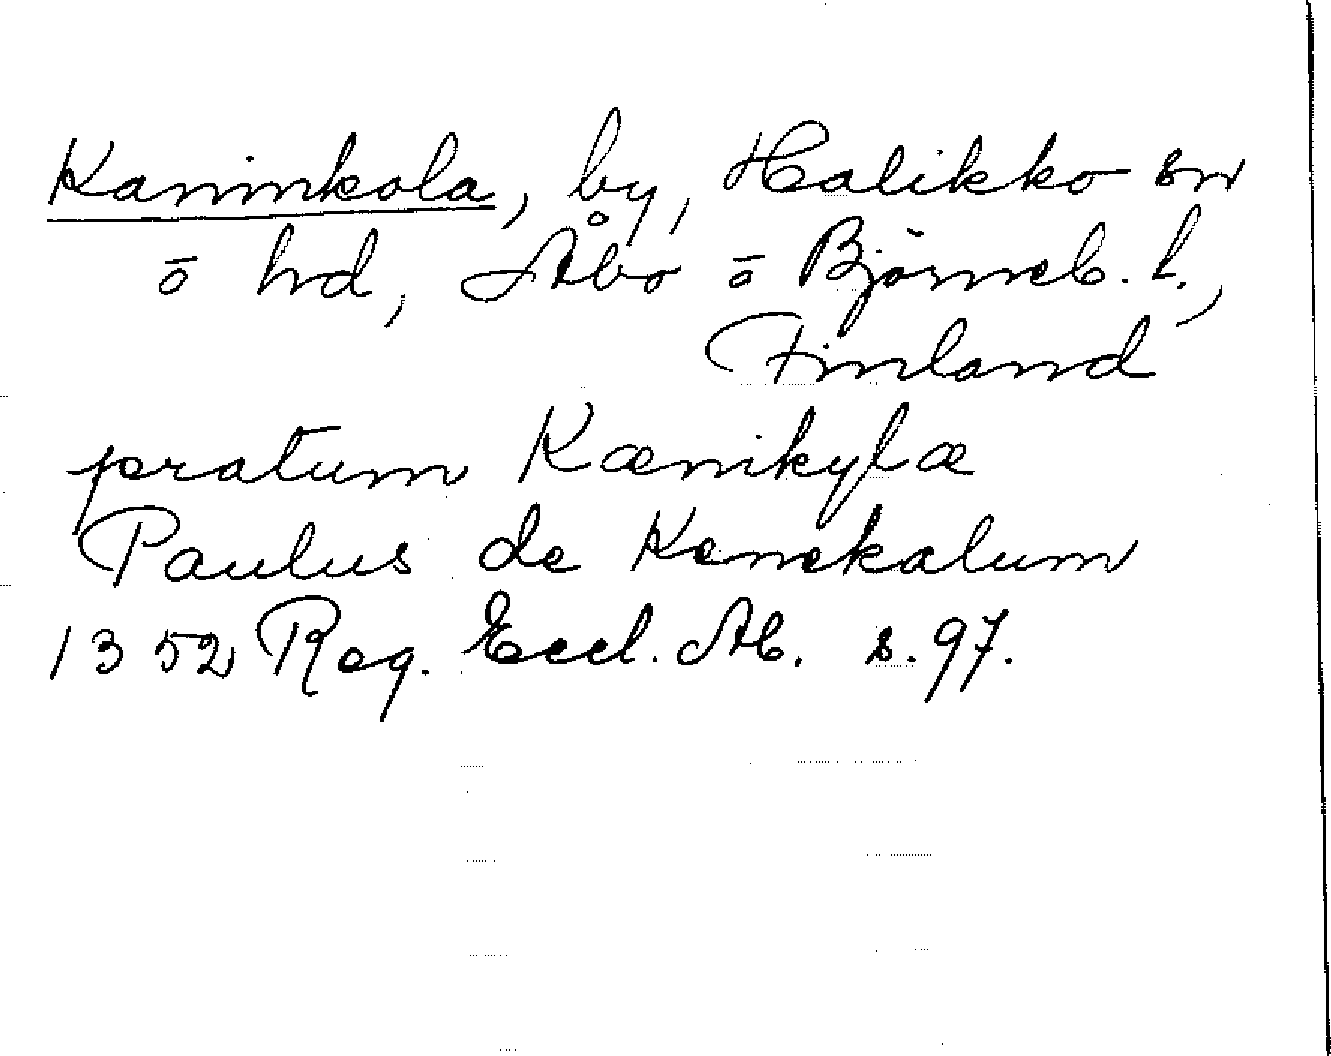 Kaninkola, by, Halikko sn
ō hd, Åbo ō Björneb. l.,
Finland
pratum Kænikylæ
Paulus de Kenekalum
1352 Reg. Eccl. Ab. s. 97.